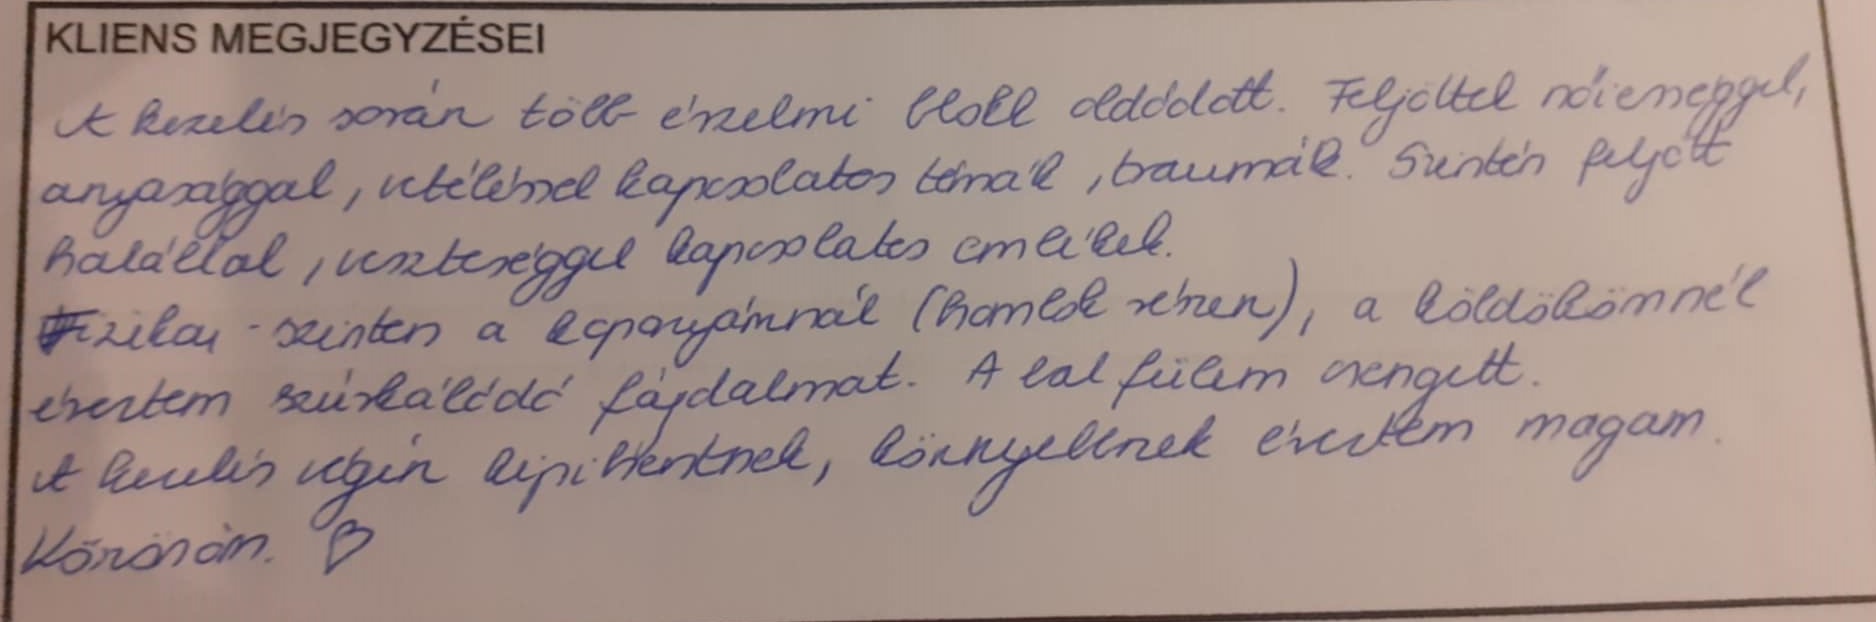 KLIENS MEGJEGYZÉSEI
A kezelés során több érzelmi blokk oldódott. Feljöttek nőiességgel,
anyasággal, vetéléssel kapcsolatos témák, traumák. Szintén feljött
halállal, veszteséggel kapcsolatos emlékek.
Fizikai szinten a koponyámnál (homlok részen), a köldökömnél
éreztem szúrkálódó fájdalmat. A bal fülem csengett.
A kezelés végén kipihentnek, könnyebbnek éreztem magam.
Köszönöm. ♡